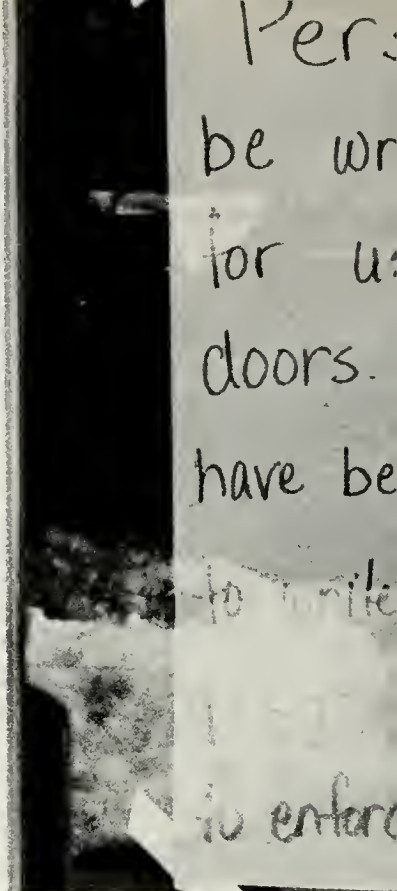 Pers
be wr
for us
doors.
have be
to write
to enforc